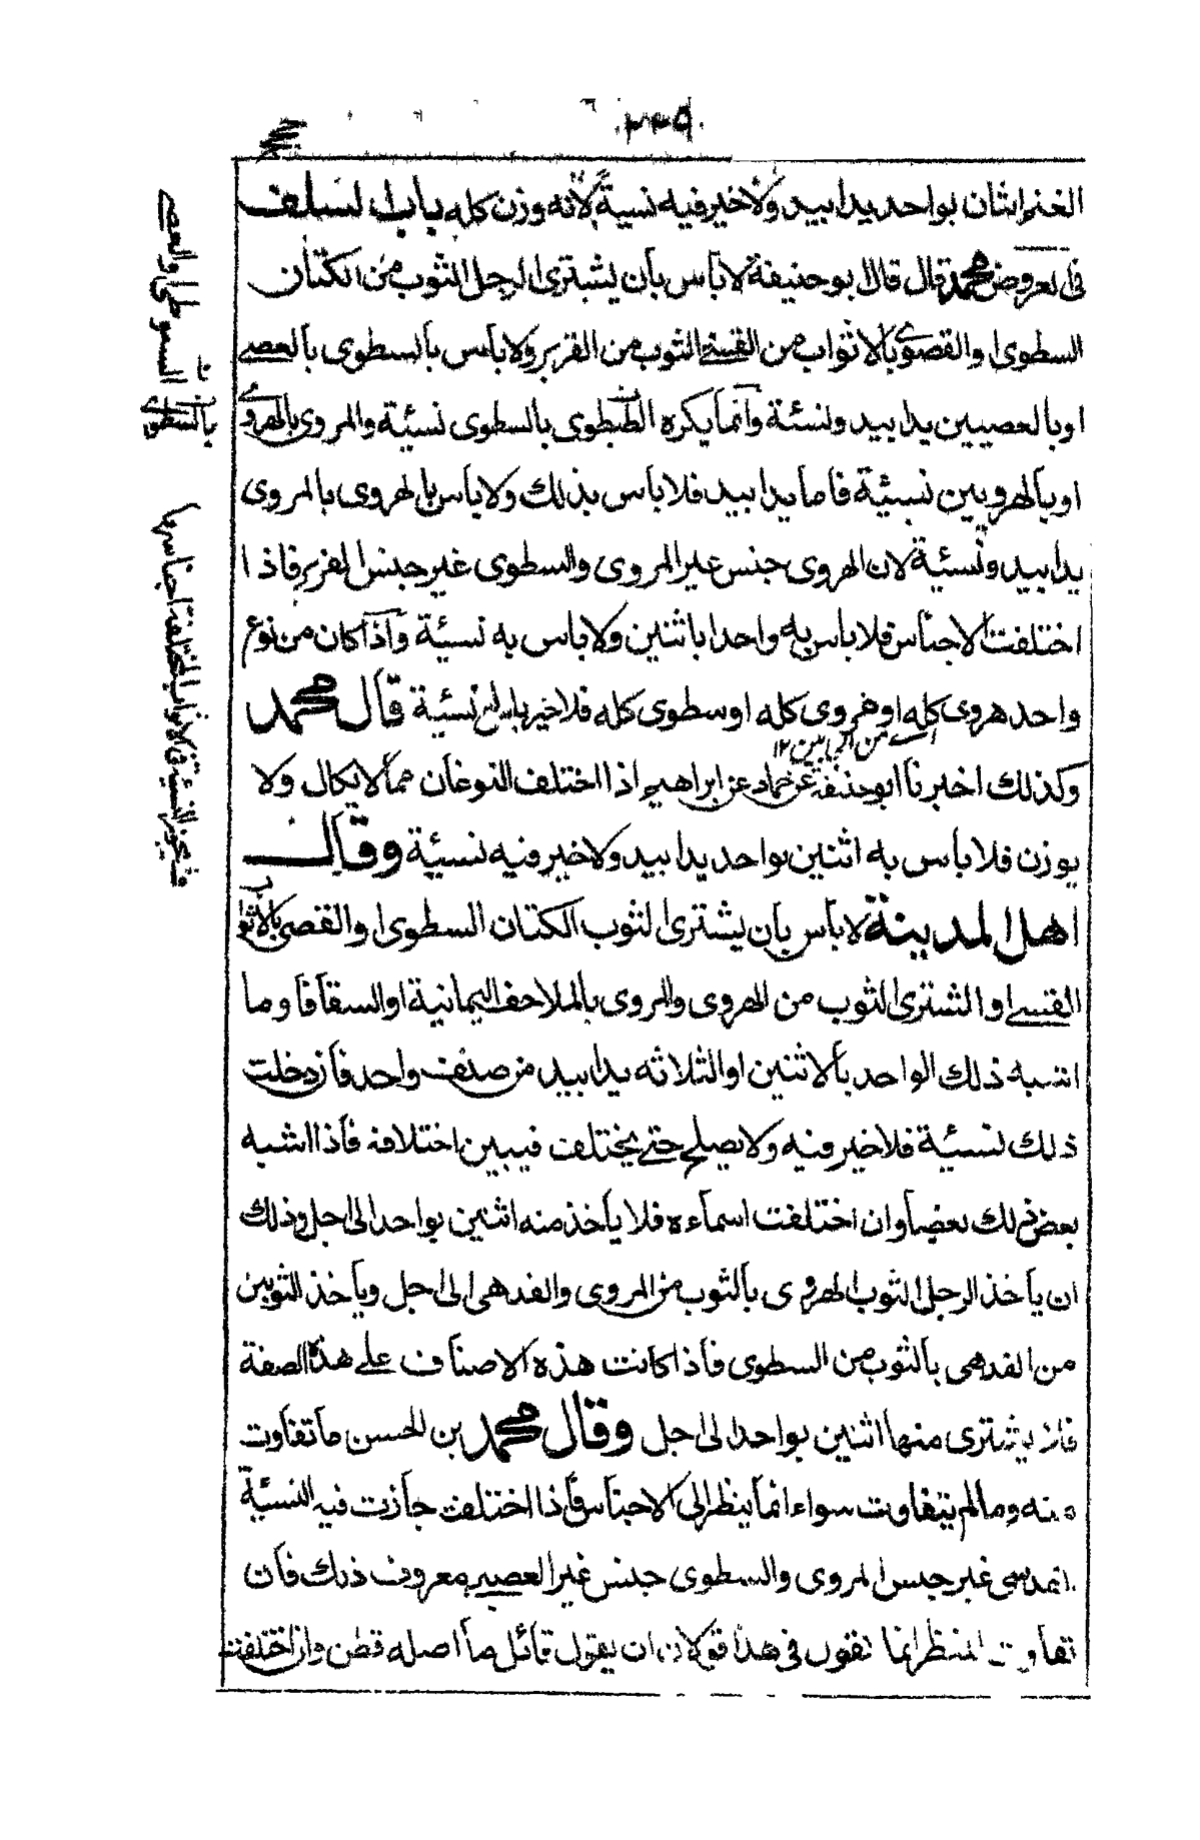 ٢٢٩
الغنم اثنان بواحد يدا بيد ولا خير فيه نسية لانه وزن كله باب السلف
فى العروض محمد قال قال ابو حنيفة لا بأس بأن يشترى الرجل الثوب من الكتان
السطوى او القصوى بالاثواب من القسى الثوب من القزبر ولا بأس بالسطوى بالعصى
او بالعصيين يدا بيد ونسئة وانما يكره السطوى بالسطوى نسيئة والمروى بالهروى
او بالهرويين نسيئة فاما يدا بيد فلا باس بذلك ولا باس بالهروى بالمروى
يدا بيد ونسئية لان الهروى جنس غير المروى والسطوى غير جنس القزبر فاذا
اختلفت الاجناس فلا باس به واحدا باثنين ولا باس به نسيئة واذا كان من نوع
واحد هروى كله او مروى كله او سطوى كله فلا خير نسئية قال محمد
من الجانبين ١٢
وكذلك اخبرنا ابو حنيفة عن حماد عن ابراهيم اذا اختلف النوعان مما لا يكال ولا
يوزن فلا بأس به اثنين بواحد يدا بيد ولا خير فيه نسيئة وقال
اهل المدينة لا بأس بان يشترى الثوب الكتان السطوى او القصبى بالاثواب
القسى او الشترى الثوب من الهروى والمروى بالملاحف اليمانية او السقاقا وما
اشبه ذلك الواحد بالاثنين او الثلاثه يدا بيد من صنف واحد فان دخلت
ذلك نسئية فلا خير فيه ولا يصلح حتى يختلف فيبين اختلافه فاذا اشبه
بعض ذلك بعضا وان اختلفت اسماءه فلا يأخذ منه اثنين بواحد الى اجل وذلك
ان ياخذ الرجل الثوب الهروى بالثوب من المروى والفدهى الى اجل ويأخذ الثوبين
من الفدهى بالثوب من السطوى فاذا كانت هذه الاصناف على هذه الصفة
فلا يشترى منها اثنين بواحد الى اجل وقال محمد بن الحسن ما تفاوت
منه وما لم يتفاوت سواء انما ينظر الى الاجناس فاذا اختلفت جازت فيه النسيئة
غير جنس المروى والسطوى جنس غير العصير معروف ذلك فان
تفاوت انما نقول فى هذا ان يقول قائل ما اصله قطن وان اختلفت
بالسطوى
يجوز النسئية فى الاثواب المختلفة اجناسها